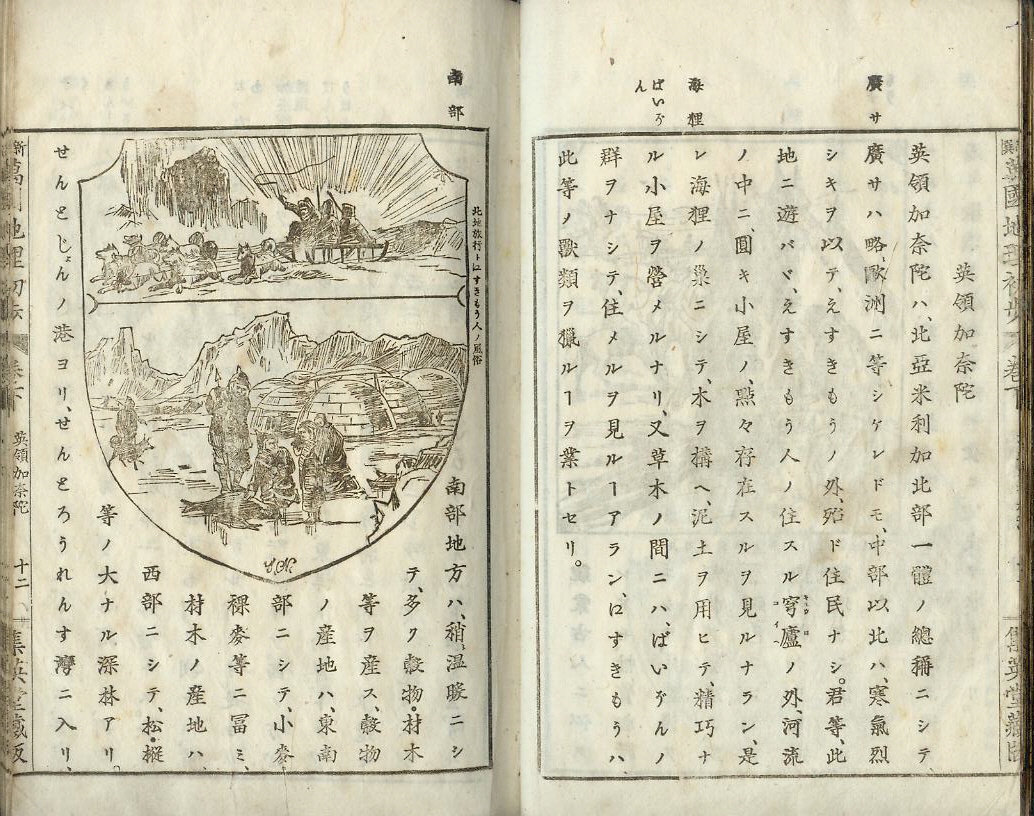 廣サ
海狸
ばいづん
英領加奈陀
英領加奈陀ハ、北亞米利加北部一體ノ總稱ニシテ、
廣サハ略、歐洲ニ等シケレドモ、中部以北ハ、寒氣烈
シキヲ以テ、えすきもうノ外、殆ド住民ナシ。君等、此
地ニ遊バヾ、えすきもう人ノ住スル穹廬ノ外、河流
ノ中ニ、圓キ小屋ノ、點々存在スルヲ見ルナラン、是
レ海狸ノ巢ニシテ、木ヲ構ヘ、泥土ヲ用ヒテ、精巧ナ
ル小屋ヲ營メルナリ、又草木ノ間ニハ、ばいづんノ
群ヲナシテ、住メルヲ見ルヿアラン、にすきもうハ、
此等ノ獸類ヲ獵ルヿヲ業トセリ。
南部
北地旅行トにすきもう人ノ風俗
南部地方ハ、稍、溫暖ニシ
テ、多ク穀物・材木
等ヲ產ス、穀物
ノ產地ハ、東南
部ニシテ、小麥・
裸麥等ニ冨ミ、
材木ノ產地ハ、
西部ニシテ、松・樅
等ノ大ナル深林アリ。
せんとじよんノ港ヨリ、せんとろうれんす灣ニ入リ、
英領加奈陀
十二
集英堂藏版